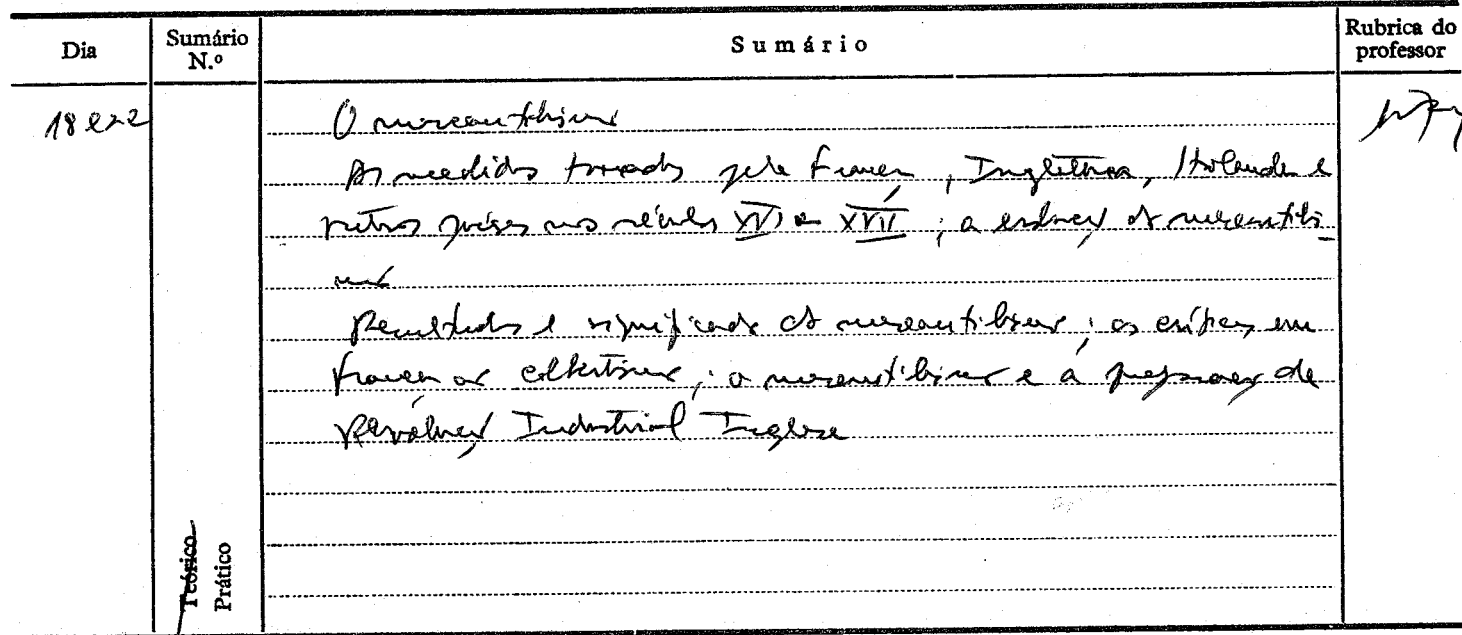 Dia
Sumário N.º
Sumário
Rubrica do professor
18 e 22
O mercantilismo
As medidas tomadas pela França, Inglaterra, Holanda e
outros países nos séculos XVI e XVII; a evolução do mercantilis-
mo
Resultados e significado do mercantilismo; as críticas em
França ao colbertismo; o mercantilismo e a preparação da
Revolução Industrial Inglesa
Teórico
Prático